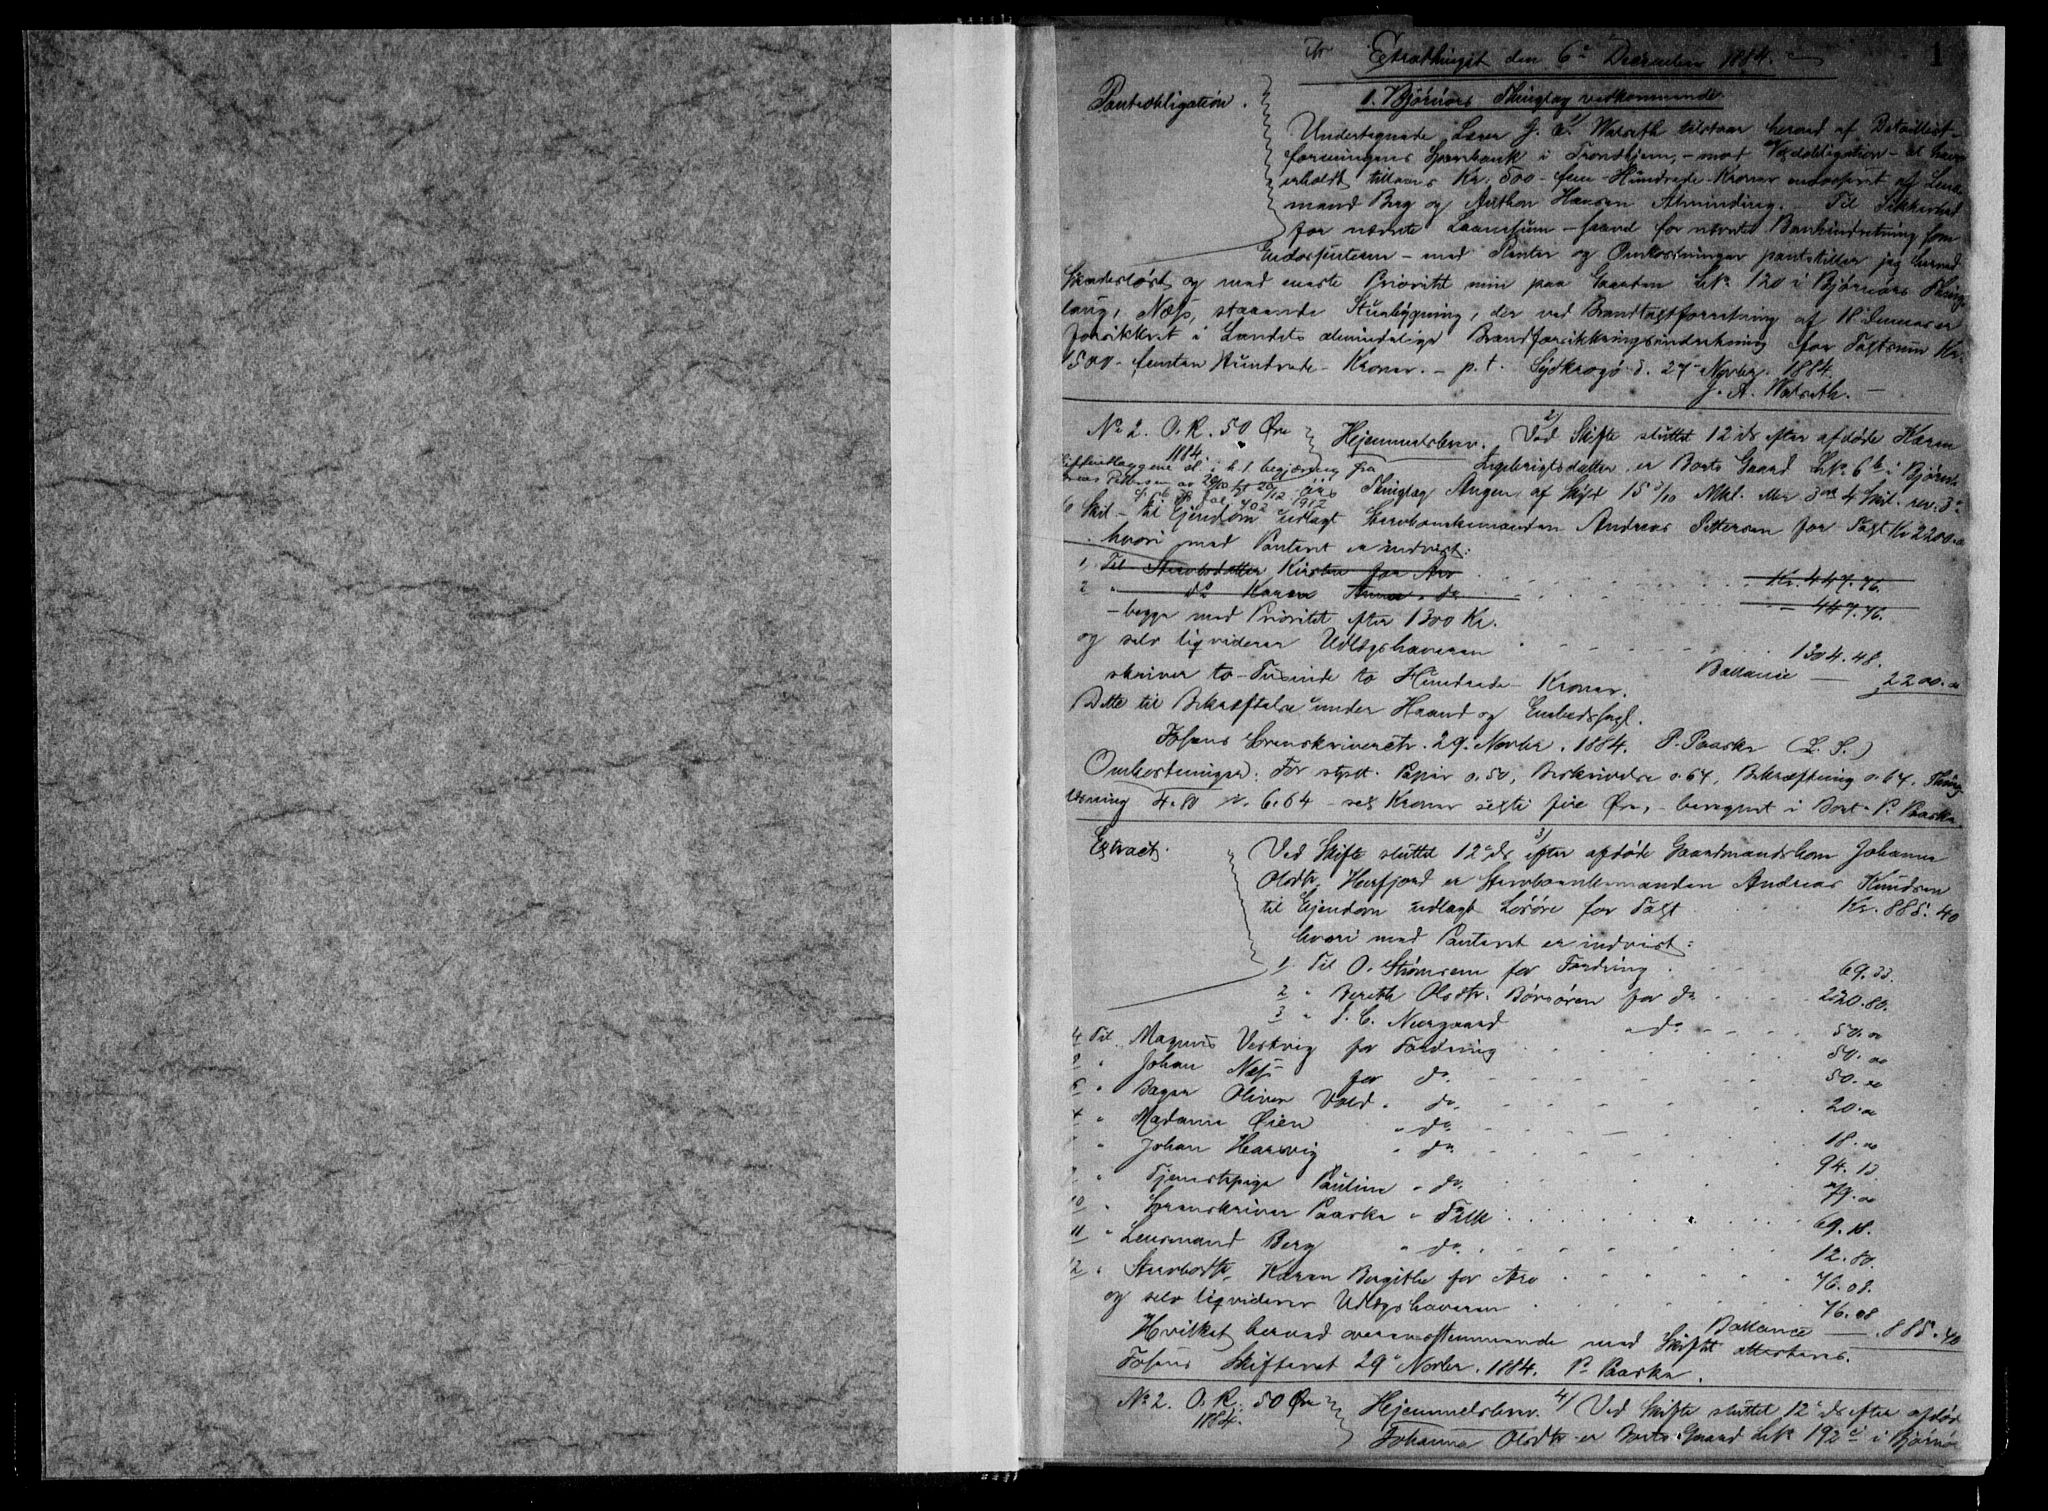 Extrathinget den 6te December 1884.
1
1. Bjørnørs Thinglag vedkommende.
Pantobligation.
1/
Undertegnede Lærer J. A. Walseth tilstaar herved af Detaillist-
foreningens Sparebank i Trondhjem, - mod Vexelobligation - at have
erholdt tillaans Kr. 500 - fem Hundrede Kroner endosseret af Lens-
mand Berg og Anthon Hansen Alminding. - Til Sikkerhed
for nævnte Laansum - saavel for nævnte Bankindretning som
Endossenterne - med Renter og Omkostninger pantsætter jeg herved
skadesløst og med eneste Prioritet min paa Gaarden LNo 120 i Bjørnørs Thing-
laug, Næss, staaende Stuebygning, der ved Brandtaxtforretning af 18de dennes er
forsikkret i Landets almindelige Brandforsikkringsindretning for Taxtsum Kr.
1500 - femten Hundrede - Kroner. - p. t. Sydkrogø d. 27de Novbr. 1884.
J. A. Walseth. -
No 2. O. K. 50 Øre
1884.
Hjemmelsbrev. 2/ Ved Skifte sluttet 12 ds efter afdøde Karen
Ingebrigtsdatter er Boets Gaard LNo 6b i Bjørnø-
Skifteutlæggene sl. i h. t. begjæring fra
Andreas Pettersen av 20/10 tgl 20/12 1912
rs Thinglag Angen af Skyld 15 3/10 Mkl. Mtr 3 ort 4 Skil. rev. 3 d
6 Skil - til Ejendom udlagt Stervboenkemanden Andreas Pettersen for Taxt Kr 2200.00
hvori med Panteret er indvist:
1, Til Stervbodatter Kirsten for Arv Kr. 447.76.
2 " do Karen Anna " do " 447.76.
- begge med Prioritet efter 1300 Kr.
og selv liqviderer Udlægshaveren 1304.48.
Ballance 2200.00
skriver to-Tusinde to Hundrede - Kroner.
Dette til Bekræftelse under Haand og Embedssegl.
Fosens Sorenskriverctr. 29de Novbr. 1884. P. Paaske (L. S.)
Omkostninger: For stplt. Papir 0.50, Beskrivelse 0.64, Bekræftning 0.64. Thing-
læsning 4.80 kr. 6.64 - sex Kroner sexti fire Øre, - beregnet i Boet - P. Paaske.
Extract.
3/
Ved Skifte sluttet 12te ds efter afdøde Gaardmandskone Johanna
Olsdtr. Harfjord er Stervboenkemanden Andreas Knudsen
til Ejendom udlagt Løsøre for Taxt Kr. 885.40
hvori med Panteret er indvist:
1 Til O. Strømsem for Fordring 69.33.
2 " Bereth Olsdtr. Børsøren for do 220.80.
3 " J. C. Nergaard " do 50.00
4 Til Magnus Vestvig for Fordring 50.00
5 " Johan Næss for do. 50.00
6 " Bager Oliver Vold " do. 20.00
7 " Madame Øien " do 18.00
8 " Johan Harsvig " do. 94.13
9 " Tjenestepige Pauline " do. 79.00
10 " Sorenskriver Paaske " Tilk 69.18.
11 " Lensmand Berg " do. 12.80.
12 " Stervbodtr. Karen Bergithe for Arv 76.08.
og selv liqviderer Udlægshaveren 76.08
Ballance 885.40
Hvilket herved overensstemmende med Skiftet attesteres.
Fosens Skifteret 29de Novbr. 1884. P. Paaske.
No 2. O. K. 50 Øre
1884.
Hjemmelsbrev. 4/ Ved Skifte sluttet 12te ds efter afdøde
Johanna Olsdtr er Boets Gaard LNo 192c i Bjørnør